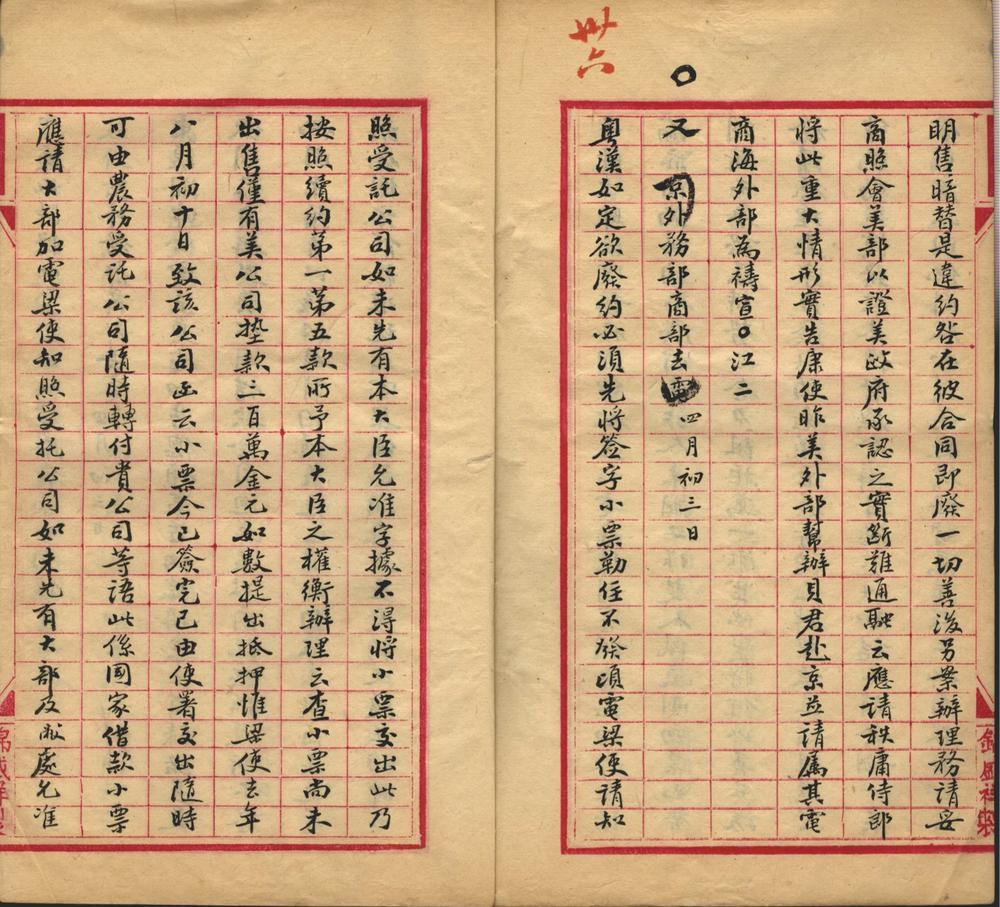 卅六
明售暗替是違約咎在彼合同即廢一切善後另案辦理務請妥
商照會美部以證美政府承認之實斷難通融云應請秩庸侍郎
將此重大情形實告康使昨美外部幫辦貝君赴京並請属其電
商海外部為禱宣〇江二
又 京外務部商部去電 四月初三日
粵漢如定欲廢約必須先將签字小票勒住不發頃電梁使請知
照受託公司如未先有本大臣允准字據不得將小票交出此乃
按照續約第一第五款所予本大臣之權衡辦理云查小票尚未
出售僅有美公司墊款三百萬金元如數提出抵押惟梁使去年
八月初十日致該公司函云小票今已簽完已由使署交出隨時
可由農務受託公司隨時轉付貴公司等語此係國家借款小票
應請大部加電梁使知照受托公司如未先有大部及敝處允准